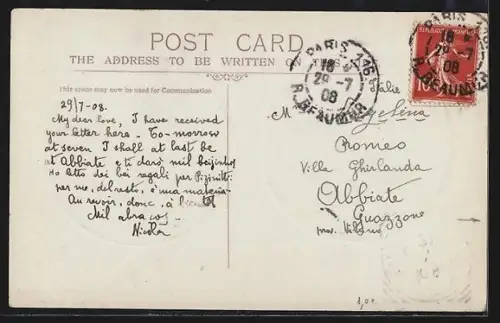 POST CARD
THE ADDRESS TO BE WRITTEN ON THIS
This space may now be used for Communication
29/7-08.
My dear love, I have received
your letter here. To-morrow
at seven I shall at last be
at Abbiate e te darò mil beijinhos
Ho letto dei bei regali per
per me, del resto, è una
Au revoir, donc, à
Mil abraços
Nicola
PARIS 146
18
29-7
08
R. BEAUMUR
PARIS 146
18
29-7
08
R. BEAUMUR
10
Italie
M
Romeo
Villa Ghirlanda
Abbiate
Guazzone
prov. Milano